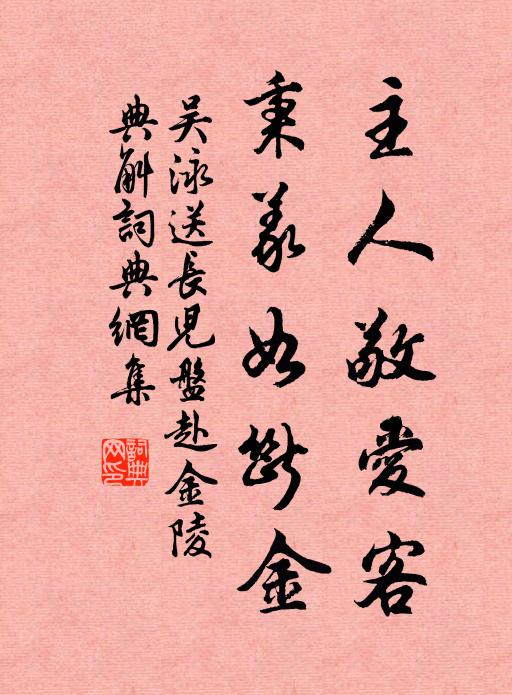 主人敬愛客
秉義如斷金
吴泳送長兒盤赴金陵
典解詞典網集
詞典網印